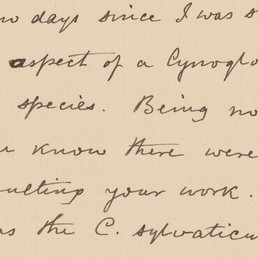 days since I was s
aspect of a Cynoglo
species. Being no
know there were
your work.
the C. sylvaticu